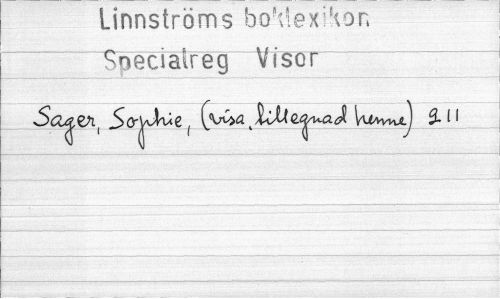 Linnströms boklexikon
Specialreg Visor
Sager, Sophie, (visa, tillegnad henne) 2 11